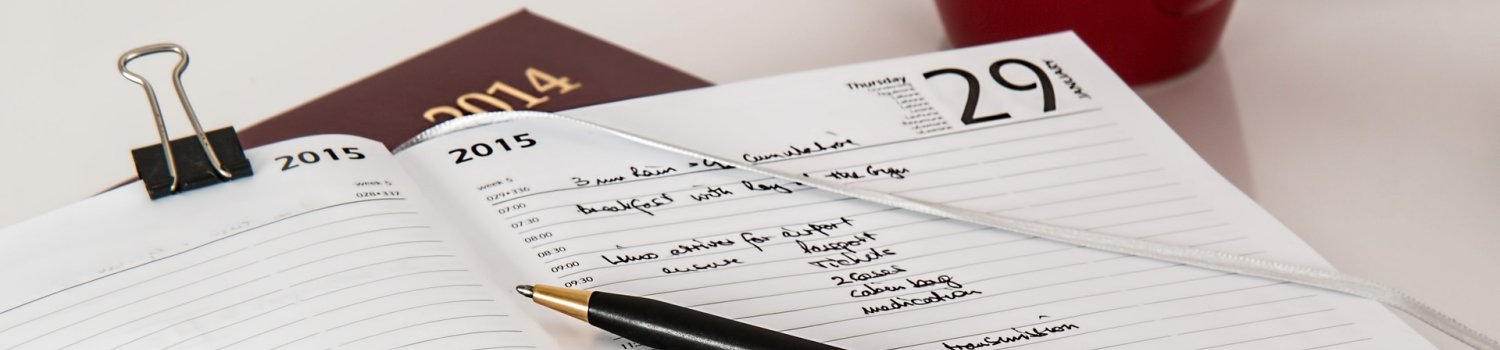 2014
2015
week 5
028•337
2015
Thursday
29
JANUARY
week 5
029•336
07:00
07:30
08:00
08:30
09:00
09:30
3 mm Rain = cumulative
Breakfast with Ray the Guys
Limo arrives for airport
ensure Passport
Tickets
2 Cases
cabin bag
medication
transmission